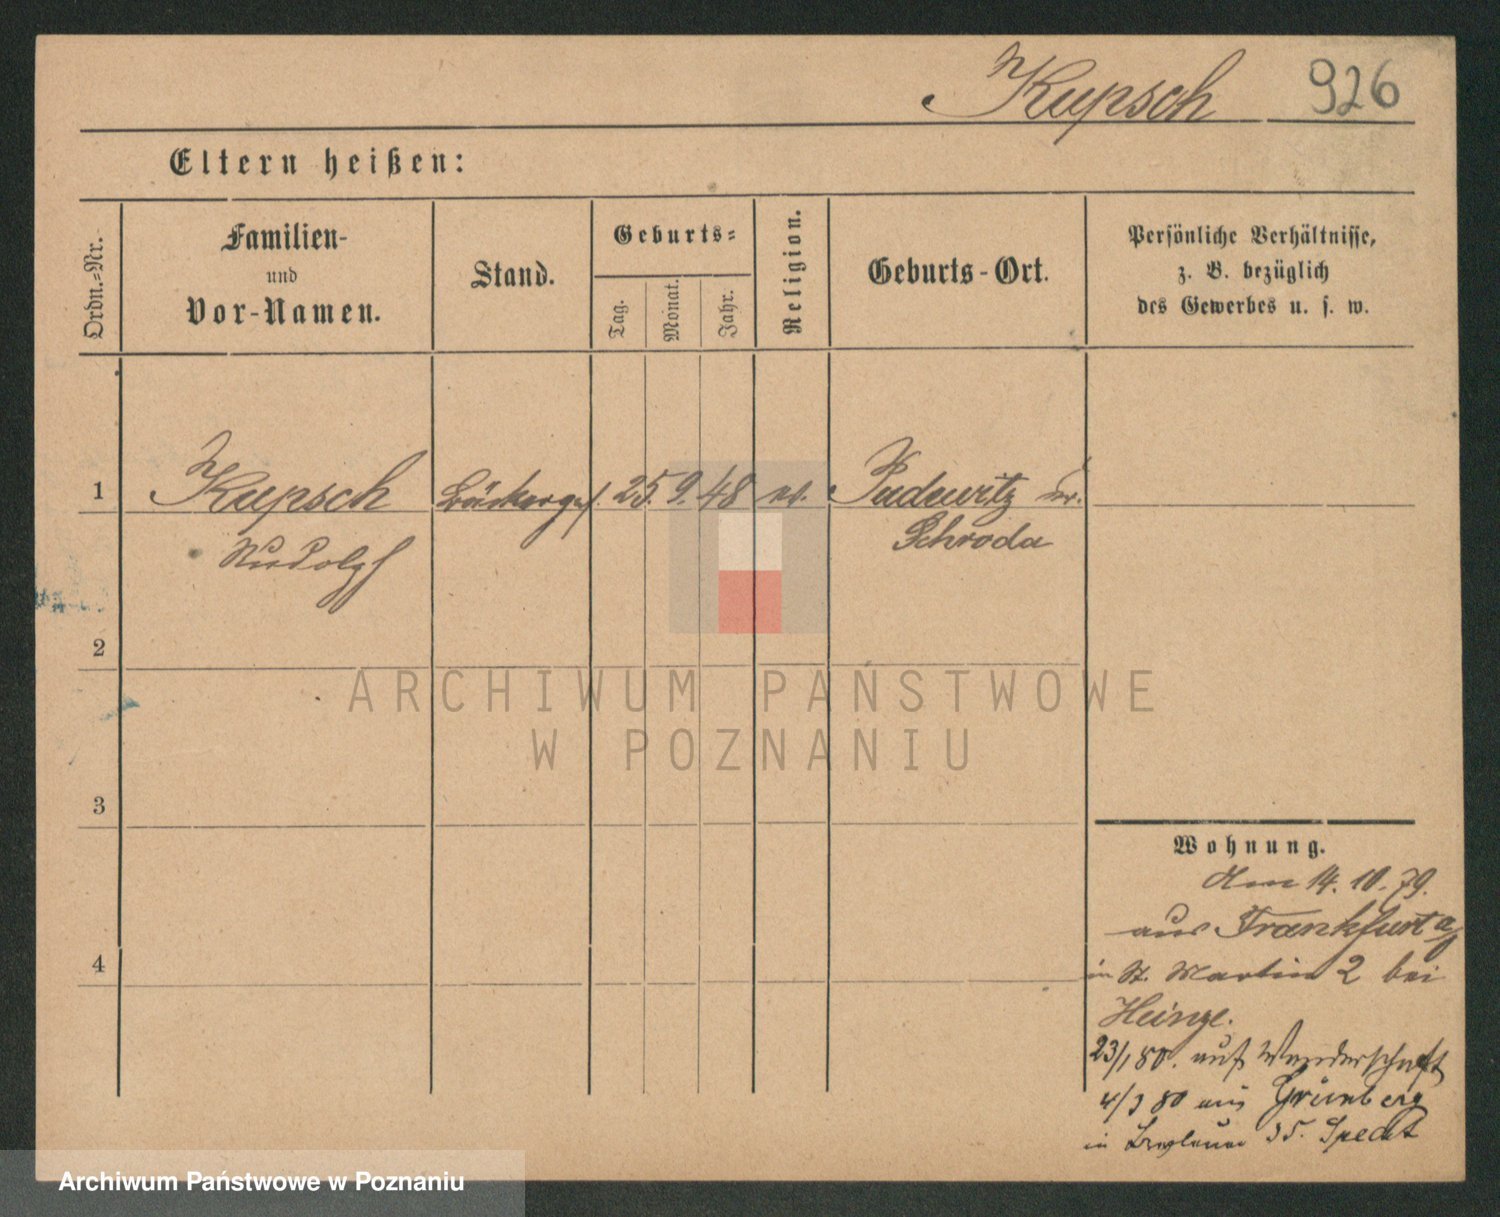 Kupsch 926
Eltern heißen:
Ordn.-Nr.
Familien-
und
Vor-Namen.
Stand.
Geburts-
Tag.
Monat.
Jahr.
Religion.
Geburts-Ort.
Persönliche Verhältnisse,
z. B. bezüglich
des Gewerbes u. s. w.
1 Kupsch Bäckerges. 25. 9. 48 ev. Pudewitz Kr.
Rudolf Schroda
2
3
4
Wohnung.
den 14. 10. 79.
aus Frankfurt a/
in St. Martin 2 bei
Heinze.
23/1 80. auf Wanderschaft
4/3 80 aus Grünberg
in Breslauer 35. Specht
ARCHIWUM PAŃSTWOWE
W POZNANIU
Archiwum Państwowe w Poznaniu